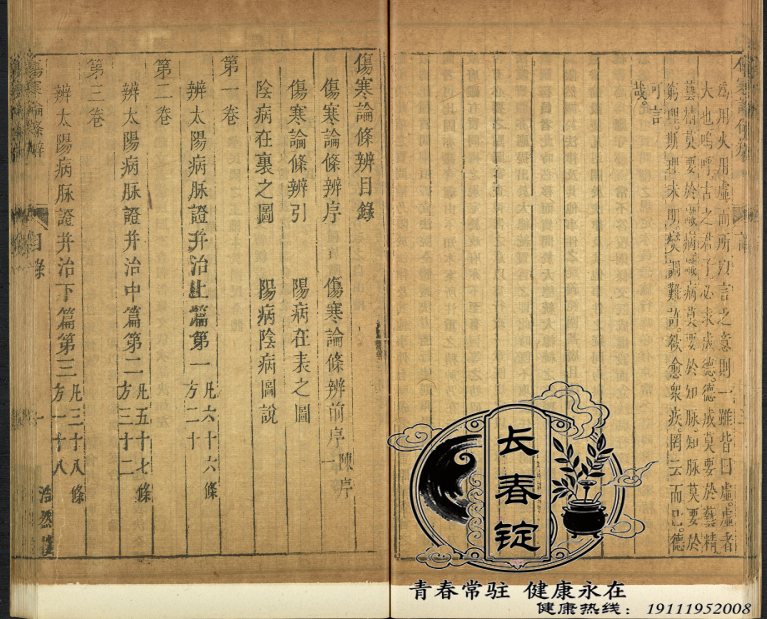 為用火用虛而所貴言之意則一雖皆曰虛虛者
大也嗚呼古之君子必求成德德成莫要於藝精
藝精莫要於識病識病莫要於知脉知脉莫要於
窮理斯理未明
可言
哉
傷寒論條辨目錄
傷寒論條辨序 傷寒論條辨前序 陳序
傷寒論條辨引 陽病在表之圖
陰病在裏之圖 陽病陰病圖說
第一卷
辨太陽病脉證并治上篇第一 凡六十六條 方二十
第二卷
辨太陽病脉證并治中篇第二 凡五十七條 方三十二
第三卷
辨太陽病脉證并治下篇第三 凡三十八條 方一十八
傷寒論條辨
目錄
一
浩然樓
长春锭
青春常驻 健康永在
健康热线：19111952008